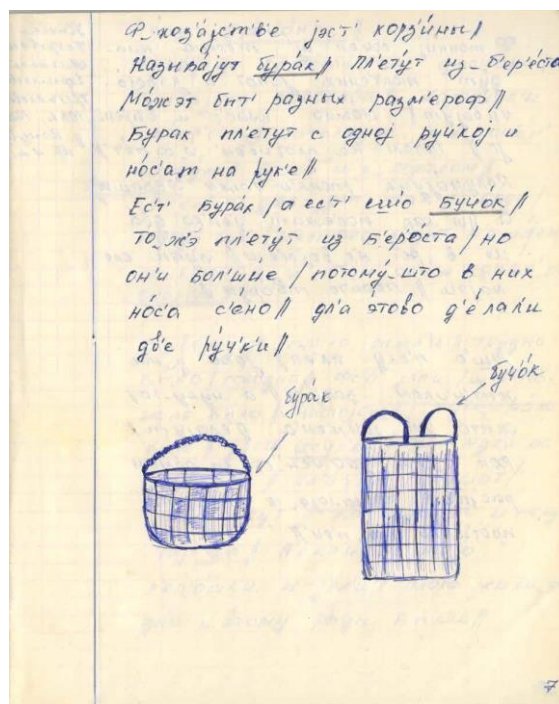 Ф хоз'а́јс'т'в'е јэст' корзи́ны//
Називајут бура́к// Пл'ету́т из–б'ер'о́ста
Мо́жэт быт' разных разм'ероф//
Бурак пл'етут с одној ручкој и
но́с'ат на рук'е//
Ес'т' бура́к / а ест' ешчо бучо́к//
То жэ пл'ету́т из б'еро́ста / но
он'и бол'шие / потому́–што в них
но́с'а с'ено// дл'а э́тово д'е́лали
дв'е ру́чк'и//
бура́к
бучо́к
7